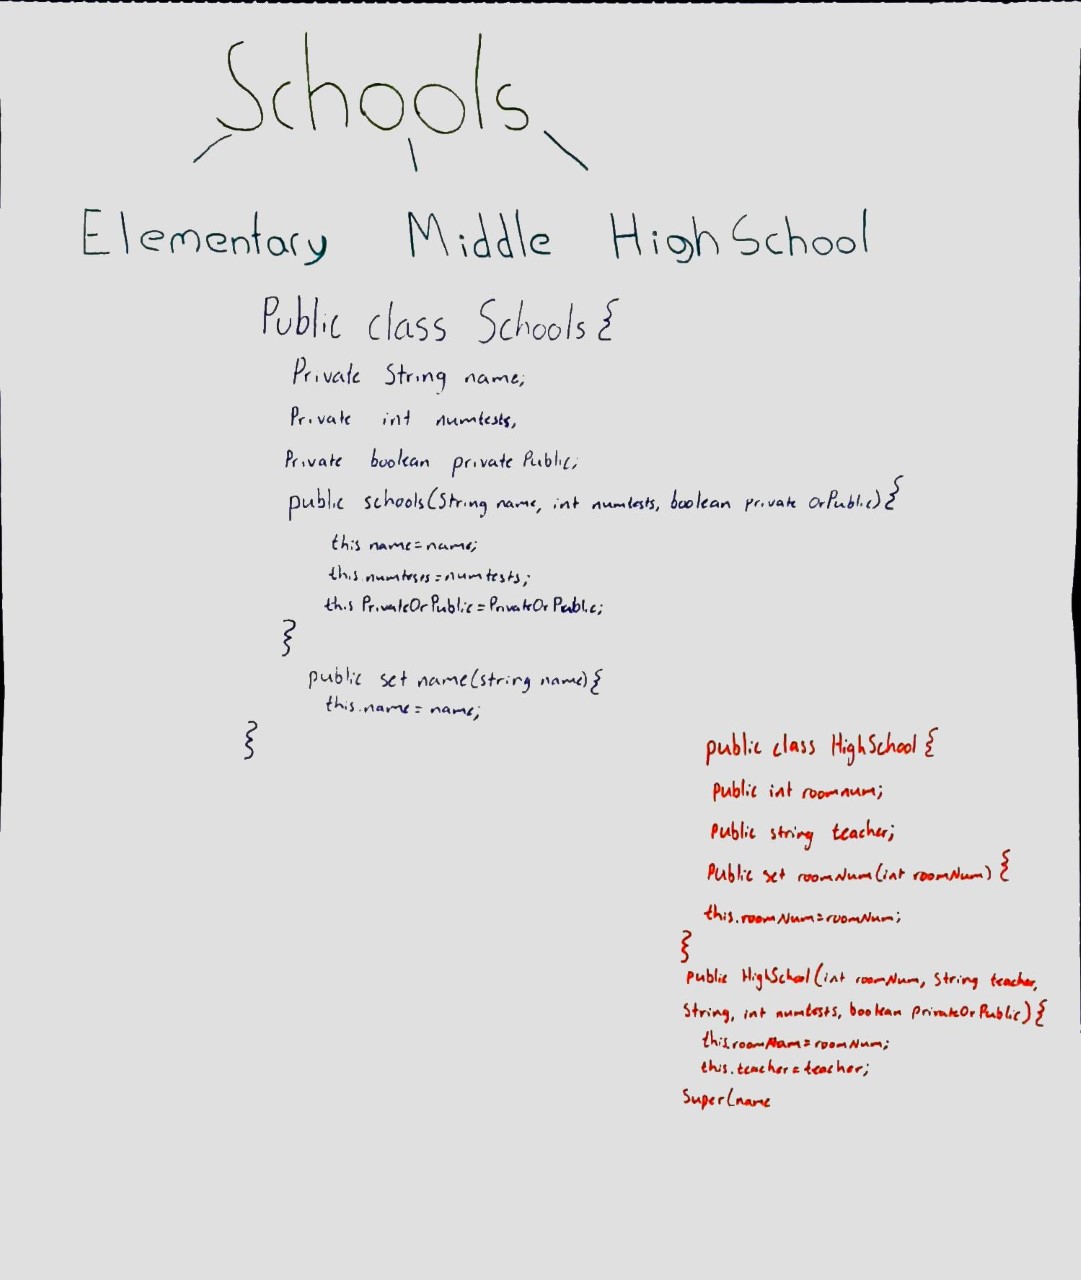 Schools
Elementary Middle High School
Public class Schools {
Private String name;
Private int numtests,
Private boolean private Public;
public schools(String name, int numtests, boolean private OrPublic) {
this name=name;
this.numtests=numtests;
this PrivateOrPublic=PrivateOrPublic;
}
public set name(string name) {
this.name=name;
}
public class HighSchool {
public int roomnum;
Public string teacher;
Public set roomNum(int roomNum) {
this.roomNum=roomNum;
}
public HighSchool(int roomNum, String teacher,
String, int numtests, boolean privateOrPublic) {
this.roomNam=roomNum;
this.teacher=teacher;
Super(name